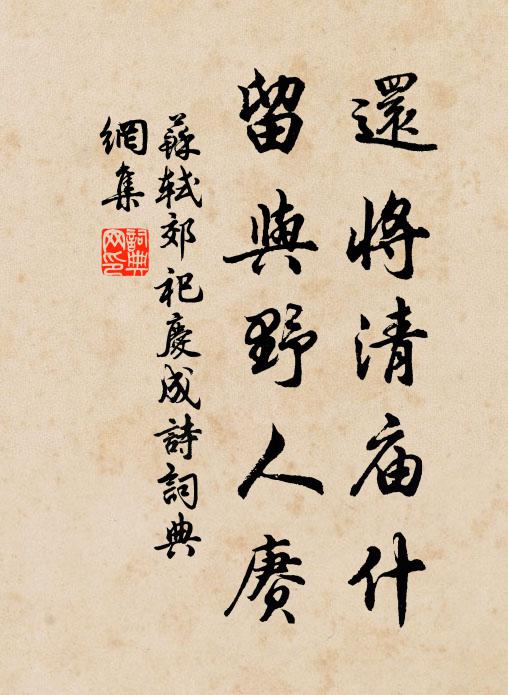 還将清庙什
留與野人賡
蘇軾郊祀慶成詩詞典
網集
詞典
网印